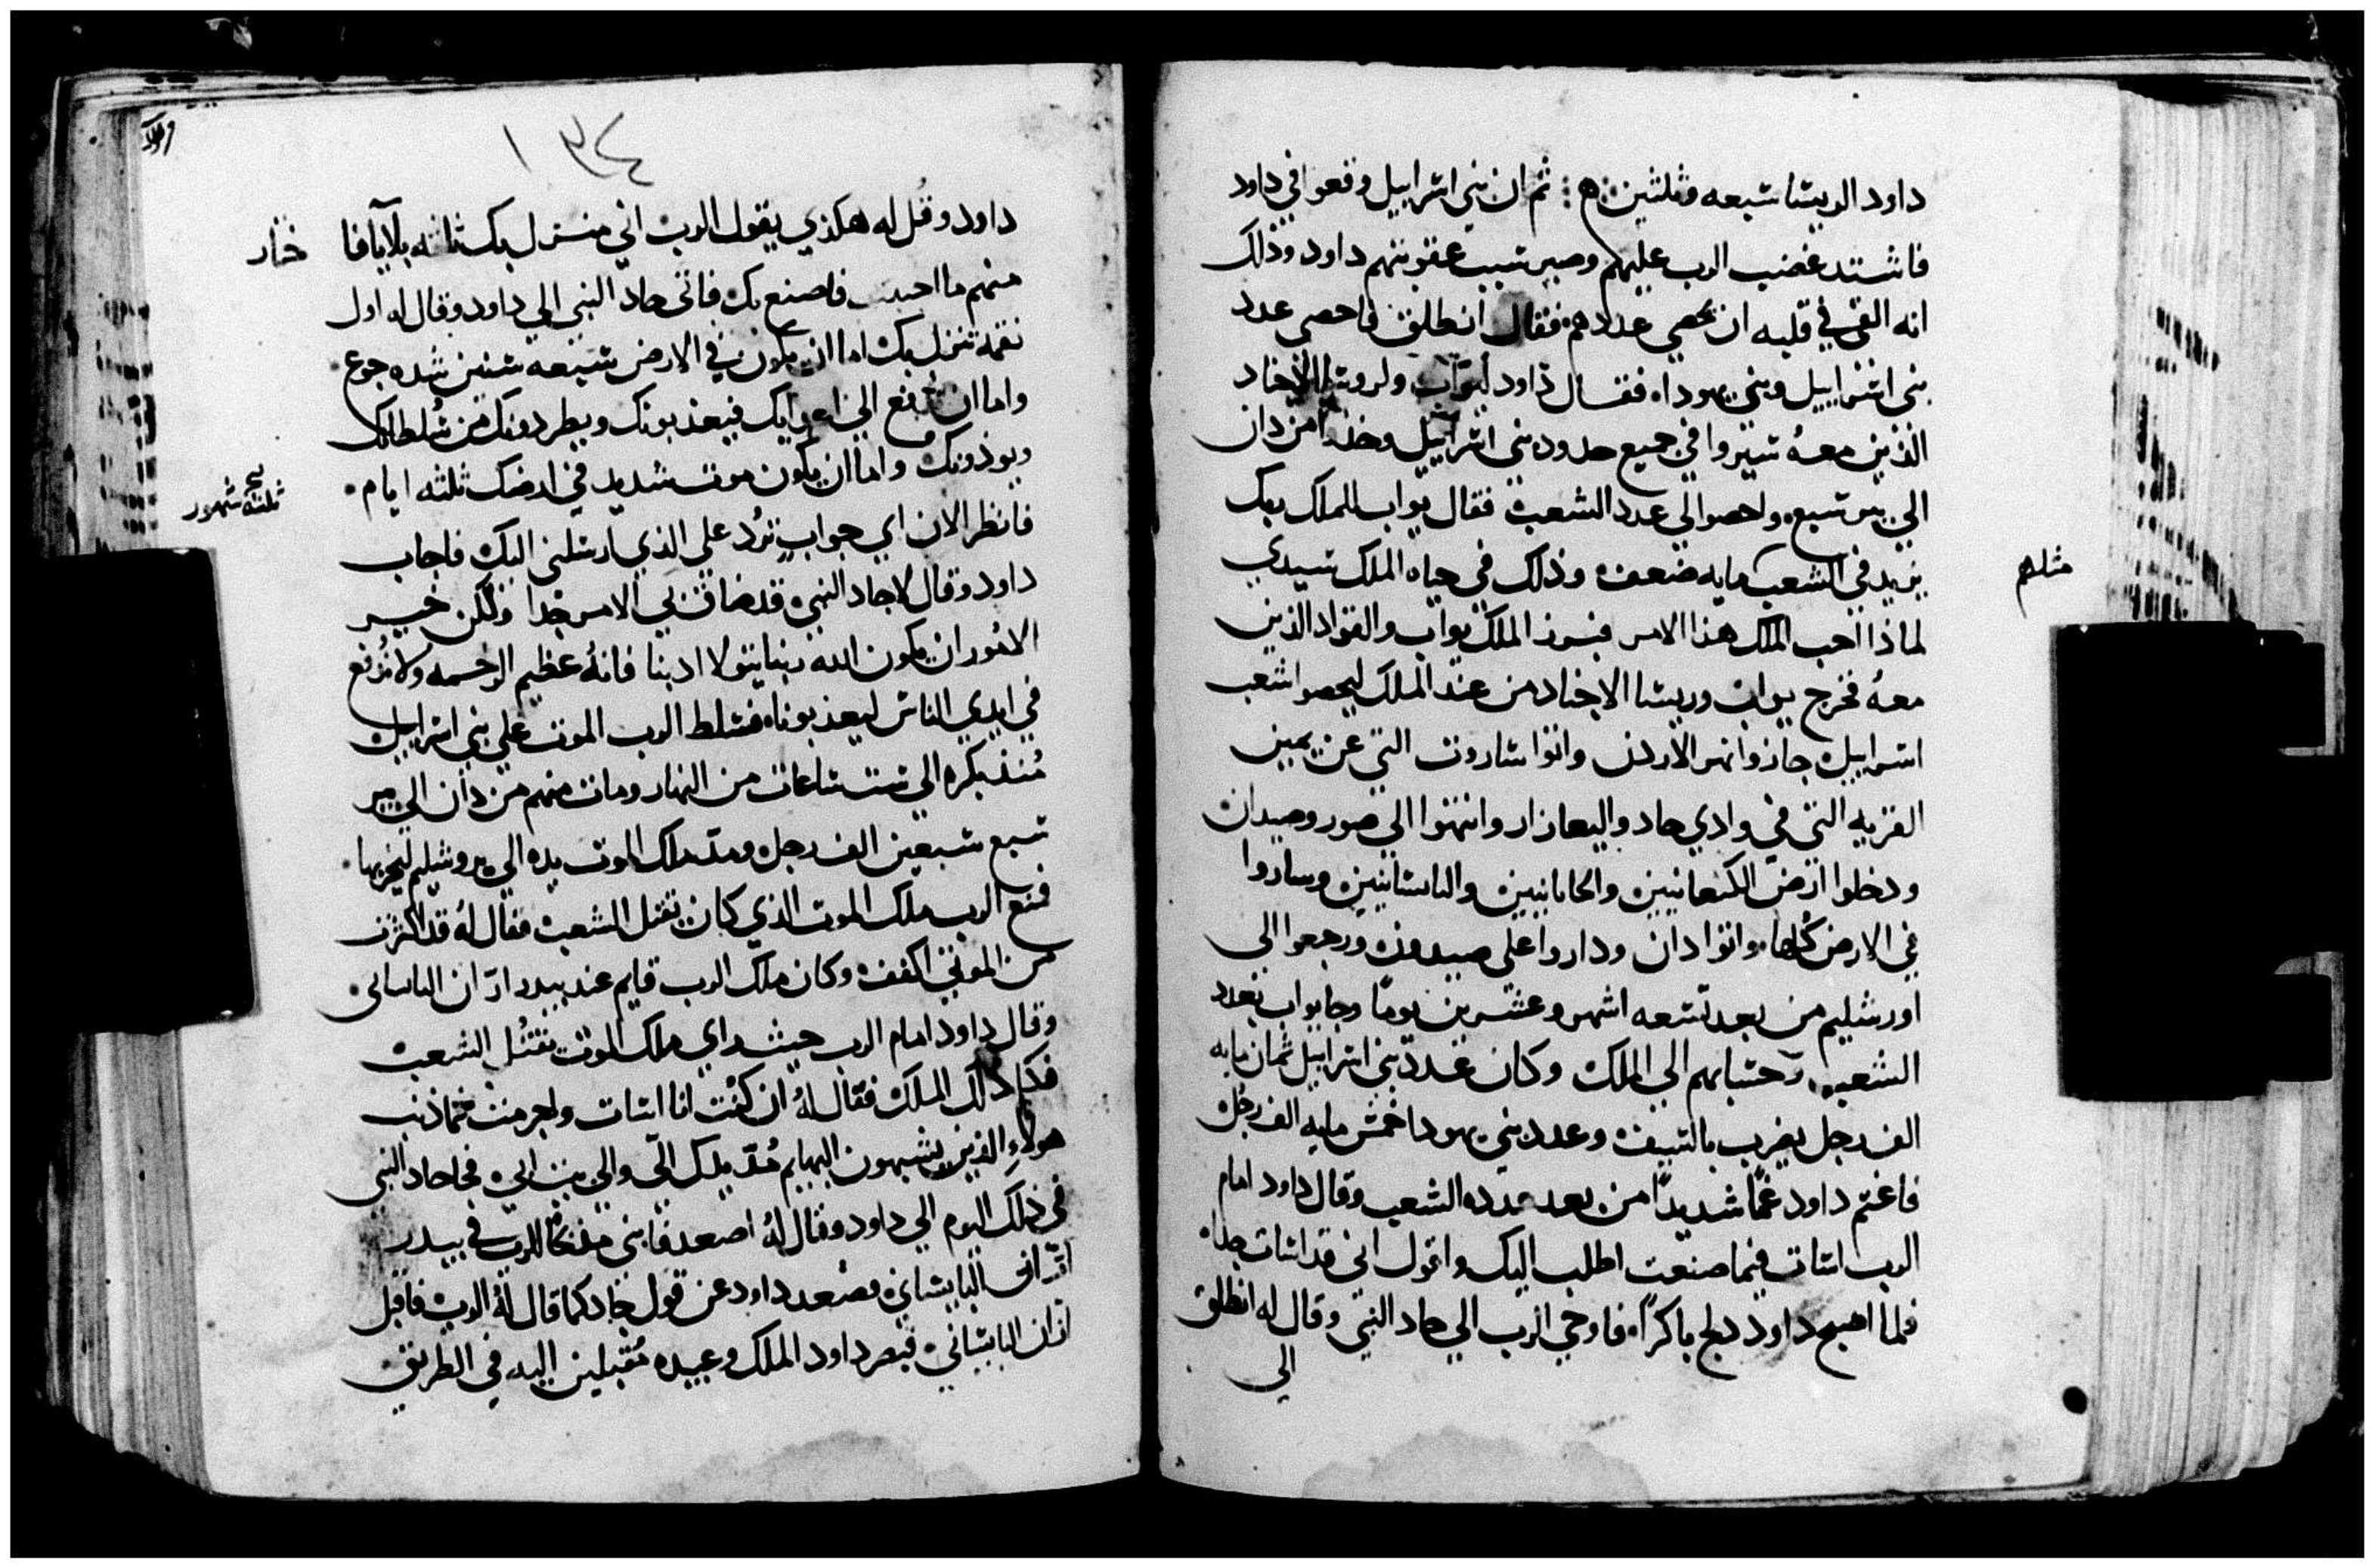 داود الريسا سبعه وثلثين ❊ ثم ان بني اسراييل وقعوا في داود
فاشتد غضب الرب عليهم وصير سبب عقوبتهم داود وذلك
انه القي في قلبه ان يحصي عددهم فقال انطلق فاحصي عدد
بني اسراييل وبني يهوداه فقال داود ليواب ولروسا الاجناد
الذين معهُ سيروا في جميع حدود بني اسراييل وخذوا من دان
الي بير سبع واحصوا لي عدد الشعب فقال يواب للملك ربك
يزيد في الشعب مايه ضعف وذلك في حياه الملك سيدي
مثلهم
لماذا احب الملك هذا الامر فبرز الملك يواب والقواد الذين
معهُ فخرج يواب وريسا الاجناد من عند الملك ليحصوا شعب
اسراييل جازوا نهر الاردن واتوا ساروت التي عن يمين
القريه التي في وادي جاد واليعازار وانتهوا الي صور وصيدان
ودخلوا ارض الكنعانيين والحانانيين والياسانيين وساروا
في الارض كُلها واتوا دان وداروا علي صيدون ورجعوا الي
اورشليم من بعد تسعه اشهر وعشرين يومًا وجا يواب بعدد
الشعب وحسابهم الي الملك وكان عدد بني اسراييل ثمان مايه
الف رجل يضرب بالسيف وعدد بني يهودا خمس مايه الف رجُل
فاغتم داود غمًا شديدًا من بعد عدده الشعب وقال داود امام
الرب اسات فيما صنعت اطلب اليك واقول اني قد اسات جدا
فلما اصبح داود دلج باكرًا فاوحي الرب الي جاد النبي وقال له انطلق
الي
١٣٤
داود وقُل له هكذي يقول الرب اني منزل بك ثلثه بلايا فا
ختار
منهم ما احببت فاصنع بك فاتي جاد النبي الي داود وقال له اول
نقمه تنزل بك اما ان يكون في الارض سبعه سنين شده جوع
واما ان تدفع الي اعدايك فيعذبونك ويطردونك من سُلطانك
ويوذونك واما ان يكون موت شديد في ارضك ثلثه ايام
ثلثة شهور
فانظر الان اي جواب ترُد علي الذي ارسلني اليك فاجاب
داود وقال لاجاد النبي قد ضاقت بي الامر جدا ولكن خير
الامُور ان يكون الله ربنا يتولا ادبنا فانهُ عظيم الرحمه ولا نُدفع
في ايدي الناس ليعذبونا فسلط الرب الموت علي بني اسراييل
مُنذ بكره الي ست ساعات من النهار ومات منهم من دان الي بير
سبع سبعين الف رجل ومدّ ملك الموت يده الي يروشليم ليخربها
فمنع الرب ملك الموت الذي كان يقتل الشعب فقال لهُ قد اكثرت
من الموتي اكفف وكان ملاك الرب قايم عند بيدر اران الياساني
وقال داود امام الرب حيث راي ملك الموت يقتُل الشعب
فكلم ذلك الملك فقال لهُ ان كُنت انا اسات واجرمت فما ذنب
هولاءِ الذين يشبهون البهايم مُدّ يدك اليّ والي بيت ابي فجا جاد النبي
في ذلك اليوم الي داود وقال لهُ اصعد فابني مذبحًا للرب في بيدر
اران اليابساني فصعد داود عن قول جاد كما قال لهُ الرب فاقبل
اران اليابساني فبصر داود الملك وعبيده مُقبلين اليه في الطريق